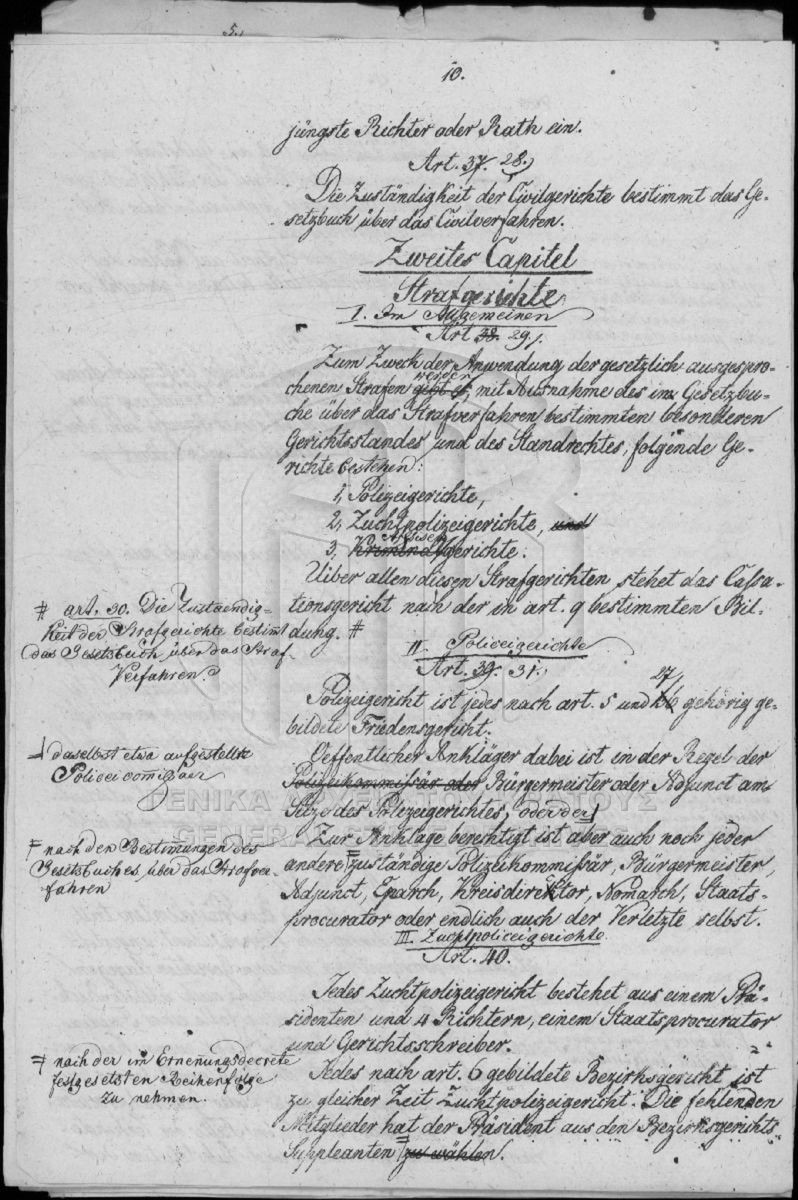 5.
10.
jüngste Richter oder Rath ein.
Art. 37. 28.
Die Zuständigkeit der Civilgerichte bestimmt das Ge-
setzbuch über das Civilverfahren.
Zweites Capitel
Strafgerichte
I. Im Allgemeinen
Art 38. 29.
Zum Zweck der Anwendung der gesetzlich ausgespro-
werden
chenen Strafen gibt es, mit Ausnahme des im Gesetzbu-
che über das Strafverfahren bestimmten besonderen
Gerichtsstandes und des Standrechtes, folgende Ge-
richte bestehen:
1, Polizeigerichte,
2, Zuchtpolizeigerichte, und
Assisen
3, Kriminalgerichte.
Uiber allen diesen Strafgerichten stehet das Cassa-
tionsgericht nach der in art. 9 bestimmten Bil-
dung. #
# art. 30. Die Zustaendig-
keit der Strafgerichte bestimt
das Gesetsbuch über das Straf
Verfahren.
II. Policeigerichte
Art. 39. 31.
27
Polizeigericht ist jedes nach art. 5 und 26 gehörig ge-
bildete Friedensgericht.
Oeffentlicher Ankläger dabei ist in der Regel der
Polizeikommissär oder Bürgermeister oder Adjunct am
Sitze des Polizeigerichtes, oder der
daselbst etwa aufgestellte
Policei comissaer
Zur Anklage berechtigt ist aber auch noch jeder
andere zuständige Polizeikommissär, Bürgermeister,
Adjunct, Eparch, Kreisdirektor, Nomarch, Staats-
procurator oder endlich auch der Verletzte selbst.
= nach den Bestimungen des
Gesetsbuches über das Strafver-
fahren
III. Zuchtpoliceigerichte
Art. 40.
Jedes Zuchtpolizeigericht bestehet aus einem Prä-
sidenten und 4 Richtern, einem Staatsprocurator
und Gerichtsschreiber.
Jedes nach art. 6 gebildete Bezirksgericht ist
zu gleicher Zeit Zuchtpolizeigericht. Die fehlenden
Mitglieder hat der Präsident aus den Bezirksgerichts
Suppleanten zu wählen.
= nach der im Ernenungsdecrete
festgesetsten Reihenfolge
zu nehmen.
ΓΕΝΙΚΑ
GENERAL